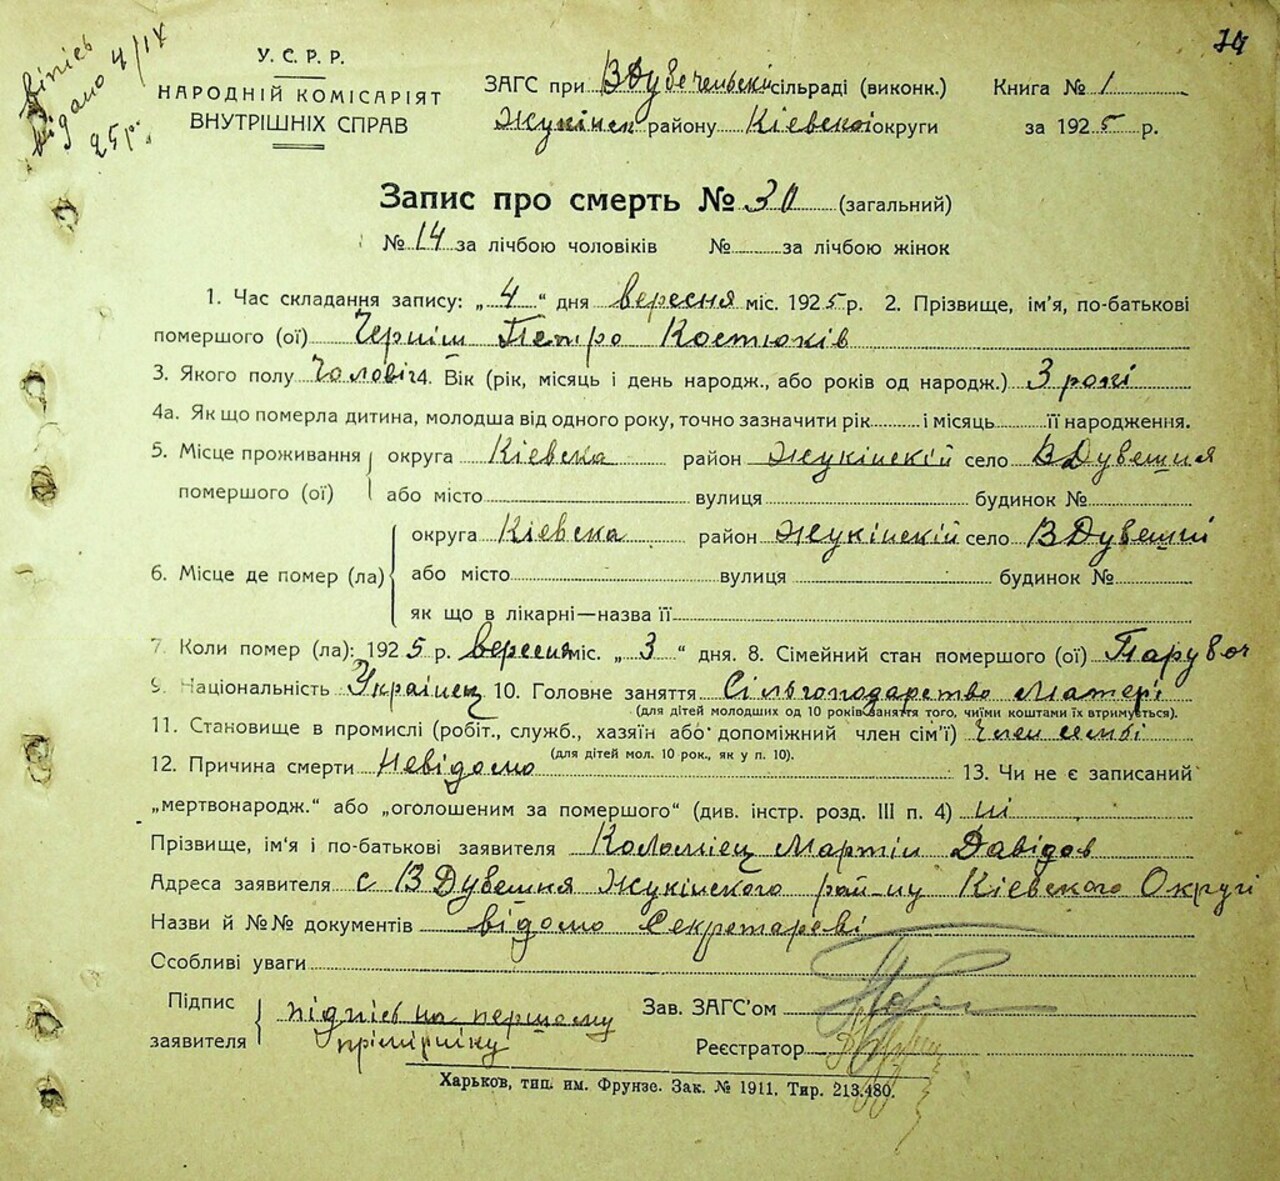 74
Випісь
видано 4/IX
25 р.
У. С. Р. Р.
НАРОДНІЙ КОМІСАРІЯТ
ВНУТРІШНІХ СПРАВ
ЗАГС при В Дубеченьскі сільраді (виконк.)
Жукінск району Кіевскоі округи
Книга № 1
за 1925 р.
Запис про смерть № 30 (загальний)
№ 14 за лічбою чоловіків № за лічбою жінок
1. Час складання запису: „4“ дня вересня міс. 1925 р. 2. Прізвище, ім’я, по-батькові
помершого (ої) Черніш Петро Костюків
3. Якого полу Чоловіч 4. Вік (рік, місяць і день народж., або років од народж.) 3 рокі
4а. Як що померла дитина, молодша від одного року, точно зазначити рік і місяць її народження.
5. Місце проживання округа Кіевска район Жукінскій село В Дувешня
помершого (ої) або місто вулиця будинок №
округа Кіевска район Жукінскій село В Дувешні
6. Місце де помер (ла) або місто вулиця будинок №
як що в лікарні—назва її
7. Коли помер (ла): 1925 р. вересня міс. „3“ дня. 8. Сімейний стан помершого (ої) Парубоч
9. Національність Украінец 10. Головне заняття Сільгоподарство Матері
(для дітей молодших од 10 років заняття того, чиїми коштами їх втримується).
11. Становище в промислі (робіт., служб., хазяїн або допоміжний член сім’ї) Член семьі
(для дітей мол. 10 рок., як у п. 10).
12. Причина смерти Невідомо 13. Чи не є записаний
„мертвонародж.“ або „оголошеним за помершого“ (див. інстр. розд. III п. 4) ні
Прізвище, ім‘я і по-батькові заявителя Коломіец Мартін Давідов
Адреса заявителя с В Дувешня Жукінского рай-ну Кіевского Округі
Назви й №№ документів відомо Секретареві
Особливі уваги
Підпис
заявителя підпісь на першому
прімірніку
Зав. ЗАГС’ом
Реєстратор
Харьков, тип. им. Фрунзе. Зак. № 1911. Тир. 213.480.